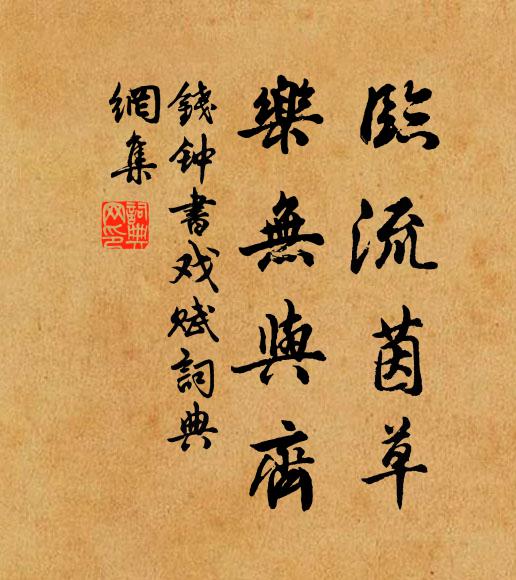 臨流茵草
樂無與齊
錢钟書戏赋詞典
網集
詞典
网印